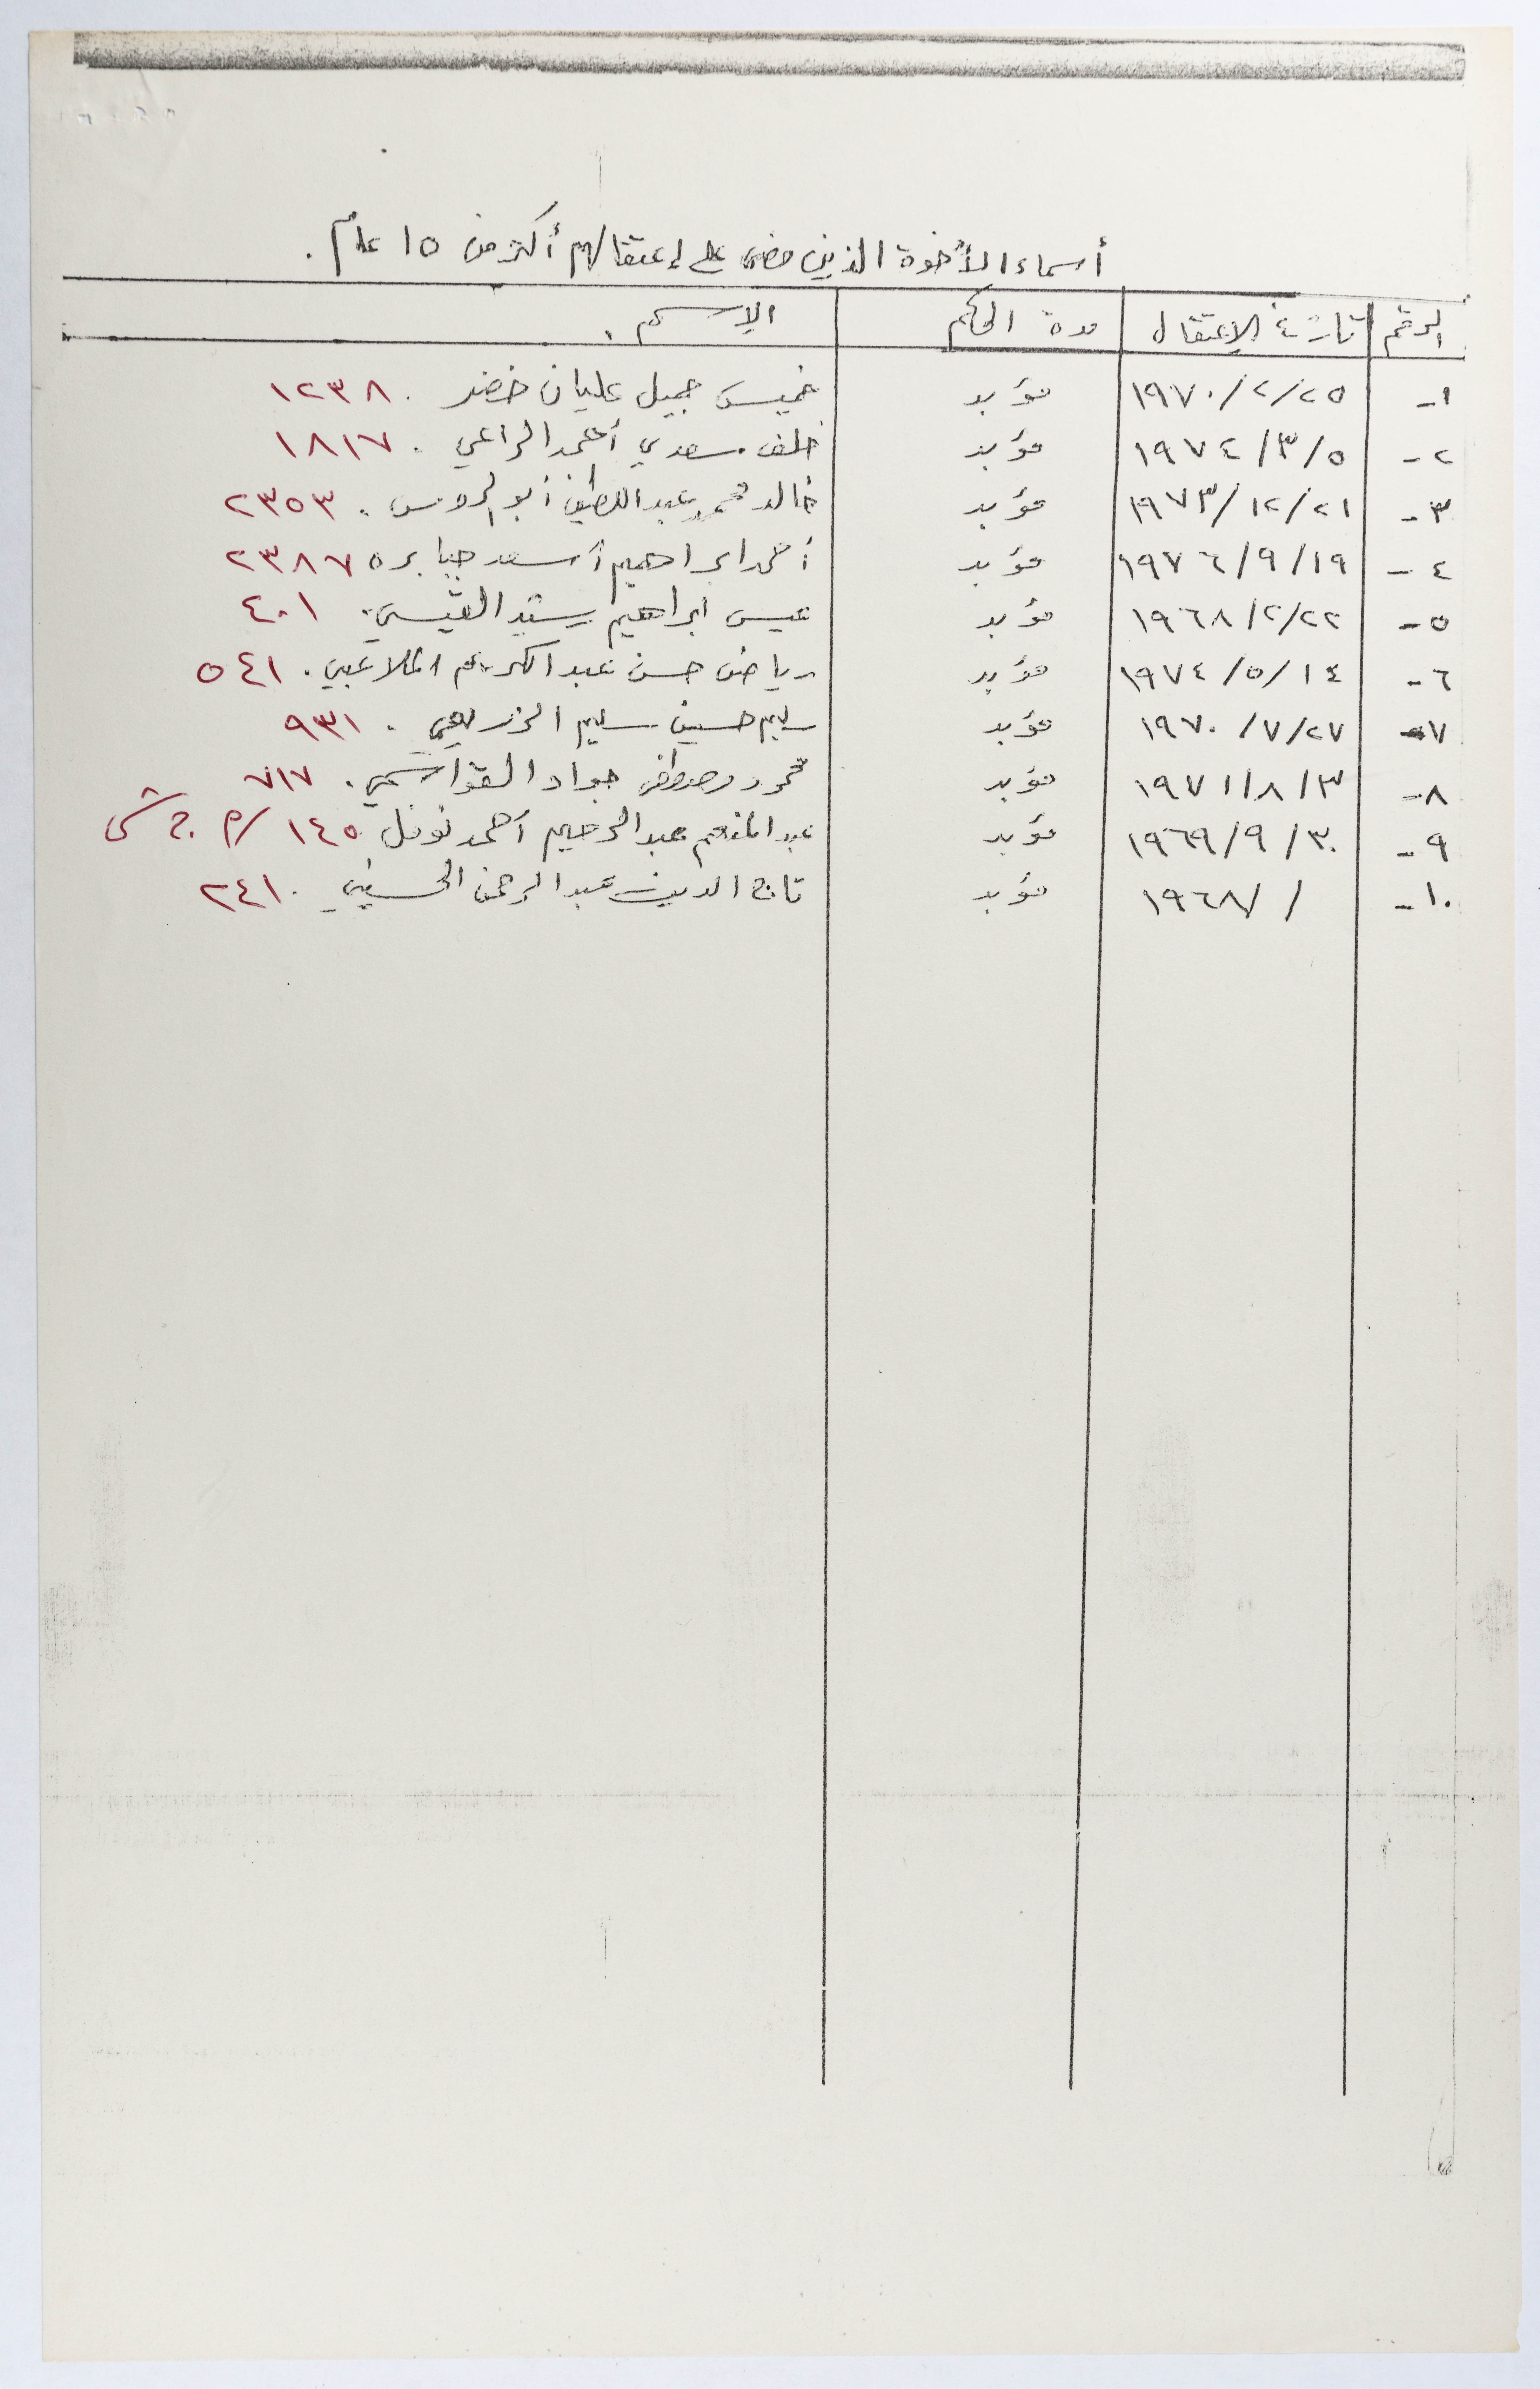 أسماء الأخوة الذين مضى على إعتقالهم أكثر من ١٥ عام .
الرقم تاريخ الإعتقال مدة الحكم الإسم
١- ١٩٧٠/٢/٢٥ مؤبد خميس جميل عليان خضر . ١٢٣٨
٢- ١٩٧٤/٣/٥ مؤبد خلف سعدي أحمد الراعي . ١٨١٧
٣- ١٩٧٣/١٢/٢١ مؤبد خالد محمد عبد اللطيف أبو الروس . ٢٣٥٣
٤- ١٩٧٦/٩/١٩ مؤبد أحمد ابراهيم أسعد جبابره ٢٣٨٧
٥- ١٩٦٨/٢/٢٢ مؤبد عيسى ابراهيم رشيد ٤٠١
٦- ١٩٧٤/٥/١٤ مؤبد رياض حسن عبد الكريم الملاعبي . ٥٤١
٧- ١٩٧٠/٧/٢٧ مؤبد سليم حسين سليم الزريعي . ٩٣١
٨- ١٩٧١/٨/٣ مؤبد محمود مصطفى جواد القواسمي . ٧١٧
٩- ١٩٦٩/٩/٣٠ مؤبد عبد المنعم عبد الرحيم أحمد نوفل ١٤٥ /م
١٠- / /١٩٦٨ مؤبد تاج الدين عبد الرحمن الحسيني . ٢٤١